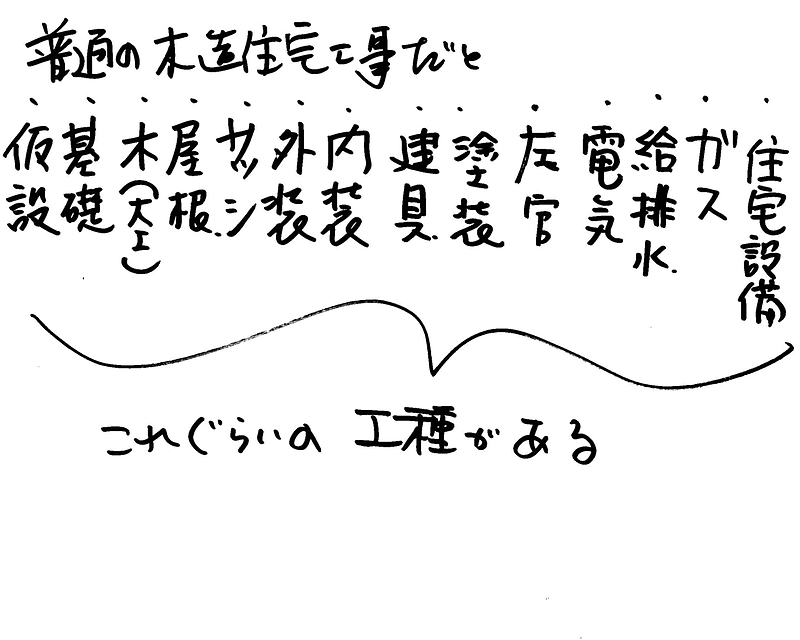 普通の木造住宅工事だと
・仮設
・基礎
・木(大工)
・屋根
・サッシ
・外装
・内装
・建具
・塗装
・左官
・電気
・給排水
・ガス
・住宅設備
これぐらいの工種がある